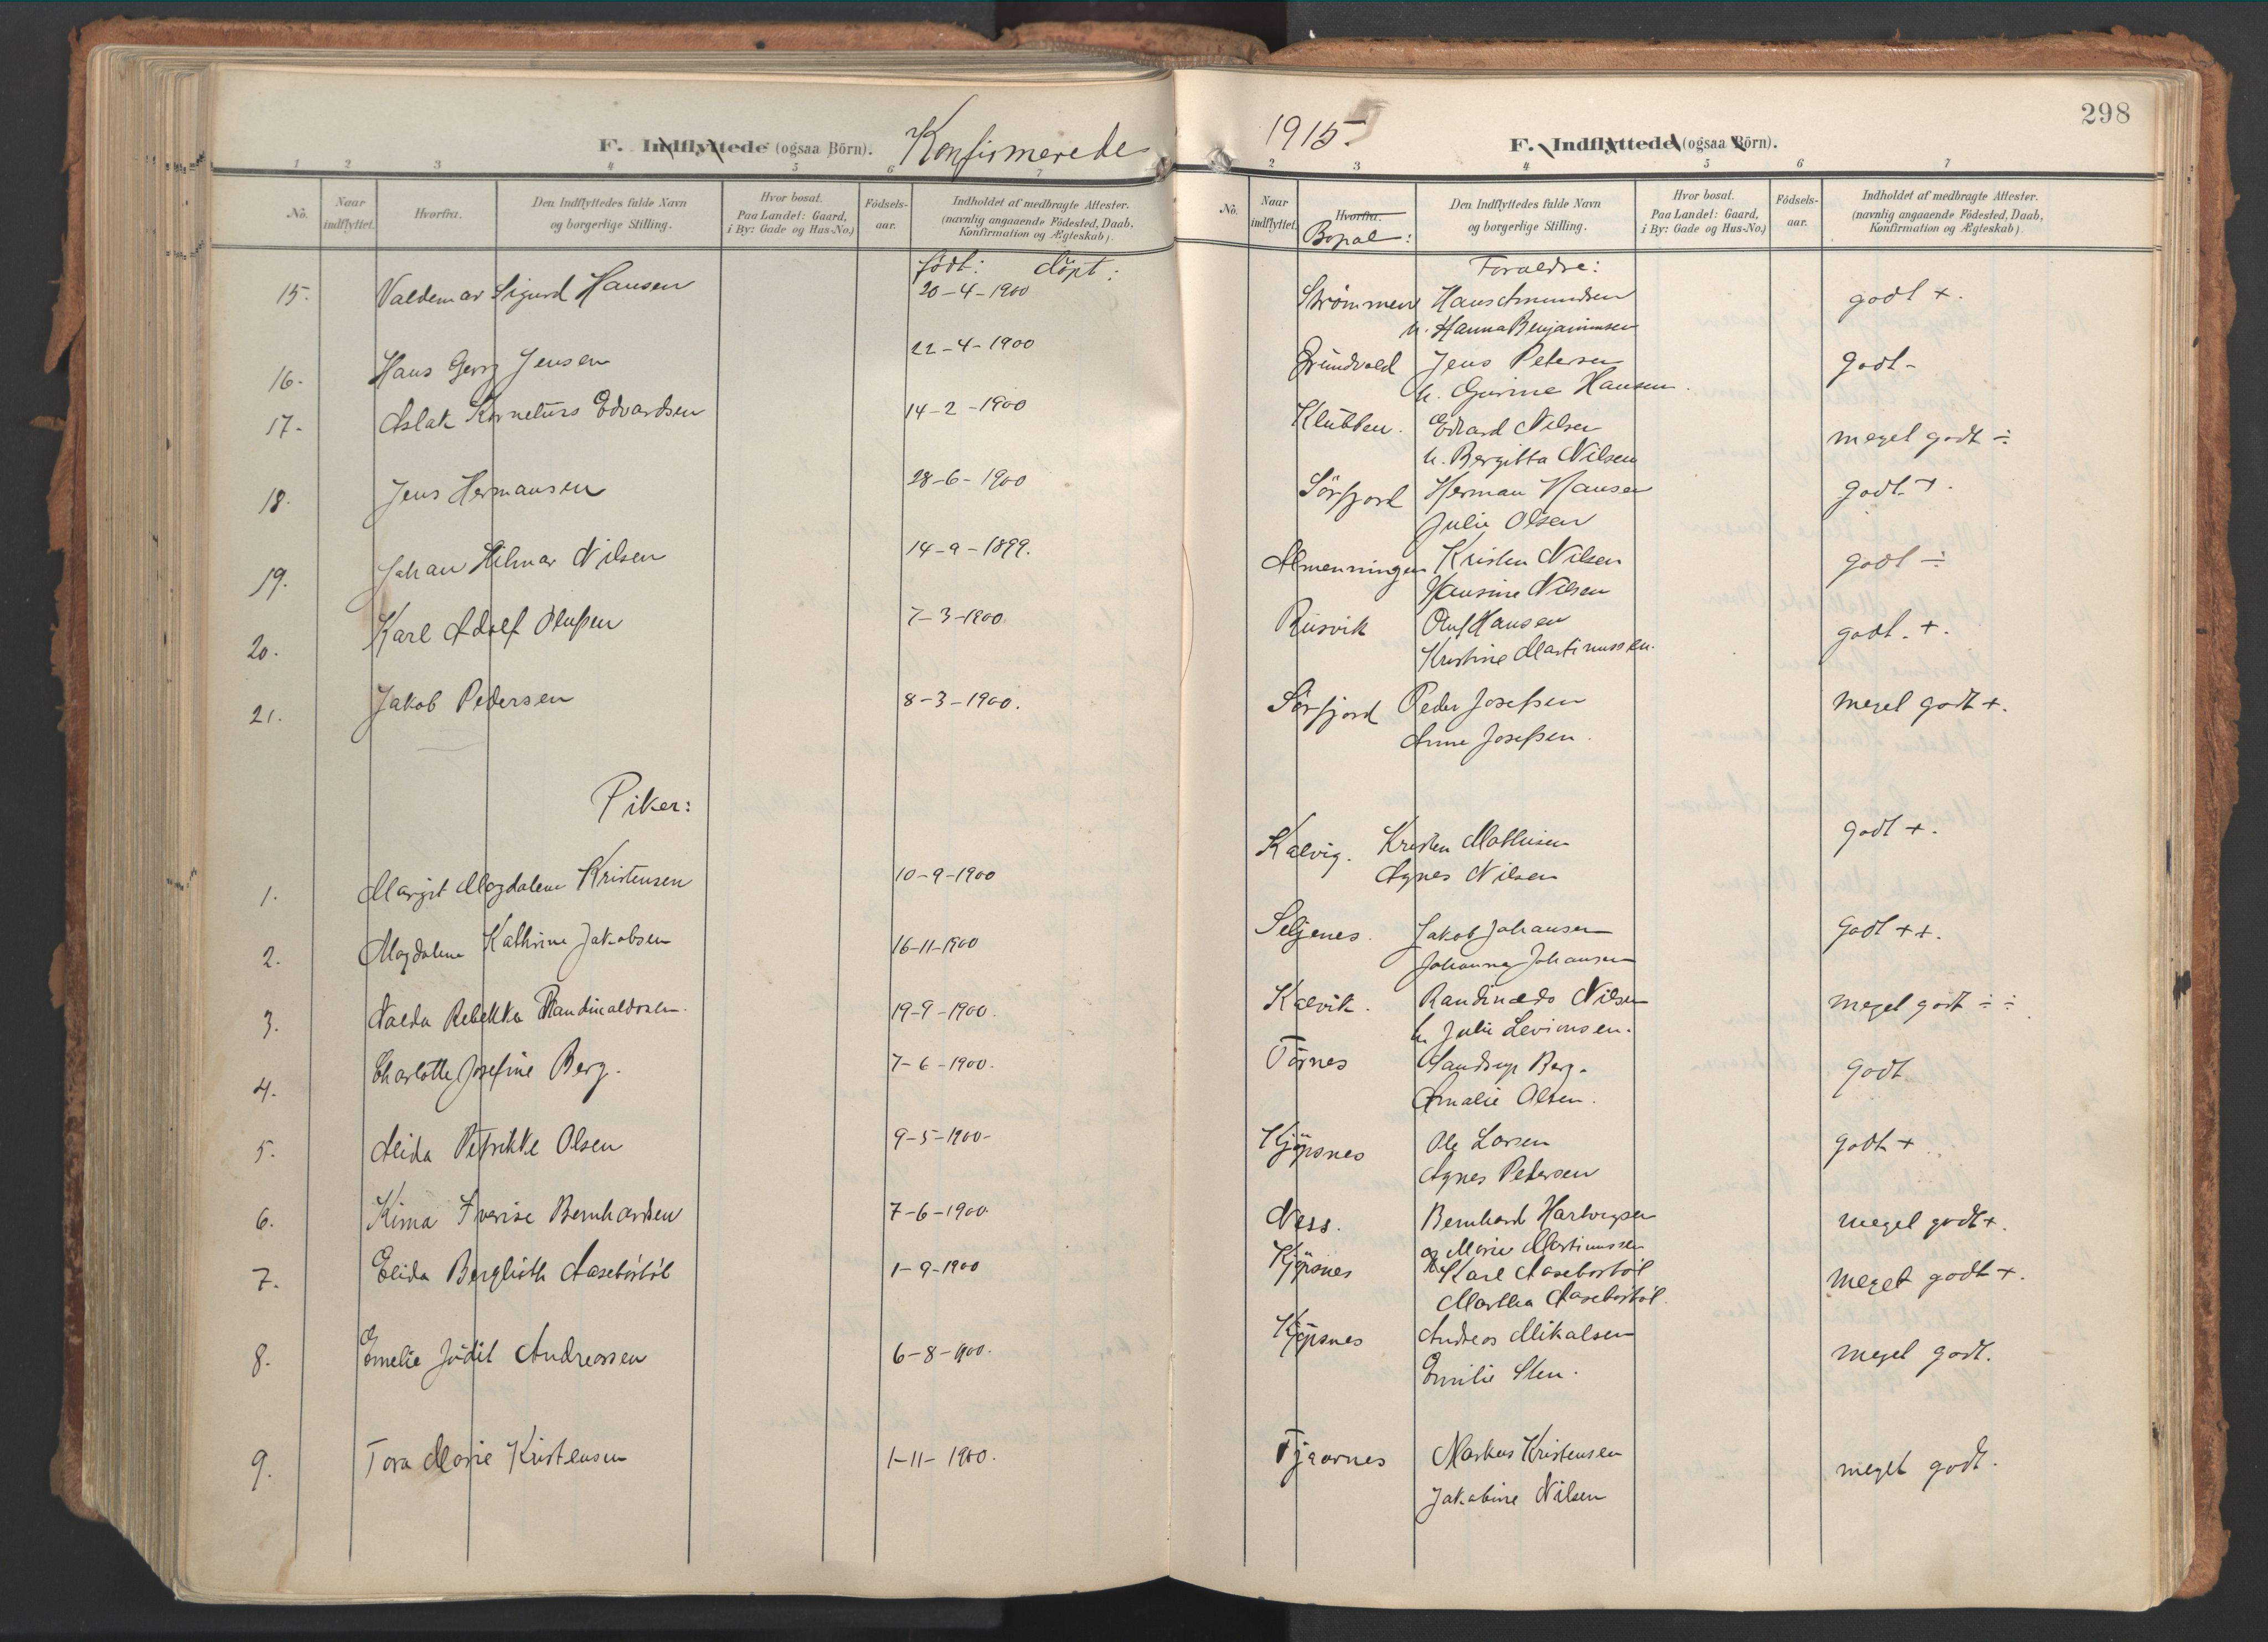 298
F. Indflyttede (ogsaa Börn). Konfirmerede 1915. F. Indflyttede (ogsaa Börn).
1 2 3 4 5 6 7 2 3 4 5 6 7
No. Naar indflyttet. Hvorfra. Den Indflyttedes fulde Navn og borgerlige Stilling. Hvor bosat. Paa Landet: Gaard, i By: Gade og Hus-No.) Födsels-aar. Indholdet af medbragte Attester. (navnlig angaaende Födested, Daab, Konfirmation og Ægteskab).
No. Naar indflyttet. Hvorfra. Bopæl: Den Indflyttedes fulde Navn og borgerlige Stilling. Hvor bosat. Paa Landet: Gaard, i By: Gade og Hus-No.) Födsels-aar. Indholdet af medbragte Attester. (navnlig angaaende Födested, Daab, Konfirmation og Ægteskab).
født: döpt: Foraeldre:
15. Valdemar Sigurd Hansen 20-4-1900 Strömmen Hans Amundsen godt +.
u. Hanna Benjaminsen
16. Hans Georg Jensen 22-4-1900 Grundvold Jens Petersen godt-
u. Gurine Hansen.
17. Aslak Kornelius Edvardsen 14-2-1900 Klubben. Edvard Nilsen meget godt ÷
u. Bergitta Nilsen
18. Jens Hermansen 28-6-1900 Sörfjord Herman Hansen godt +.
Julie Olsen
19. Johan Hilmar Nilsen 14-9-1899. Almenningen Kristen Nilsen godt ÷
Hansine Nilsen
20. Karl Adolf Olufsen 7-3-1900 Rusvik Oluf Hansen godt. +.
Kristine Martinussen.
21. Jakob Pedersen 8-3-1900. Sörfjord Peder Josefsen meget godt +.
Anne Josefsen.
Piker:
1. Margit Magdalene Kristensen 10-9-1900 Kalvig. Kristen Mathisen godt +.
Agnes Nilsen
2. Magdalena Kathrine Jakobsen 16-11-1900 Seljenes. Jakob Johansen godt ++.
Johanna Johansen
3. Nalda Rebekka Randinaldsen. 19-9-1900. Kalvik. Randinaldo Nilsen meget godt ÷ ÷
u. Julie Levionsen.
4. Charlotte Josefine Berg. 7-6-1900. Törnes Berg. godt
Amalie Olsen.
5. Alida Petrikke Olsen 9-5-1900- Kjöpsnes Ole Larsen godt +
Agnes Petersen
6. Kima Bernhardsen 7-6-1900. Ness. Bernhard meget godt+.
og Marie Martinussen
7. Elida Bergliöth Aasebøstöl 1-9-1900 Kjöpsnes Karl Aasebøstöl meget godt +.
Martha Aasebøstöl.
8. Emelie Judit Andreassen 6-8-1900. Kjöpsnes Andreas Mikalsen meget godt.
Emilie Sten.
9. Tora Marie Kristensen 1-11-1900. Tjaarnes Markus Kristensen meget godt.
Jakobine Nilsen